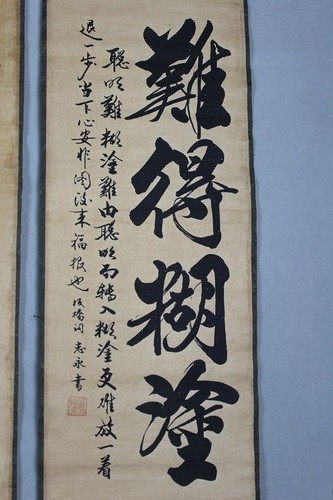 難得糊塗
聪明難糊塗難由聪明而轉入糊塗更难放一着
退一步当下心安非圖後来福报也板橋词志永書